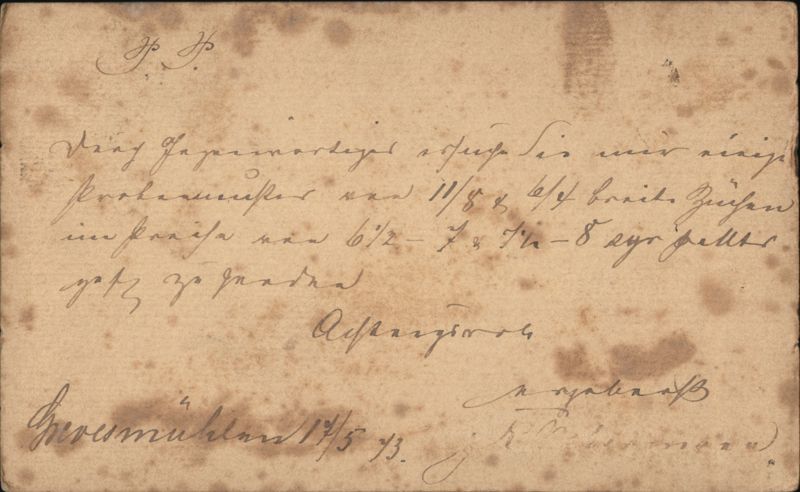 P P
Durch Gegenwärtiges ersuche Sie mir einige
Probemuster von 11/8 & 6/4 breite Züchen
im Preise von 6½ – 7 & 7½ – 8 sgr
gefl zu senden
Achtungsvoll
ergebenst
Grevesmühlen 17/5 73.